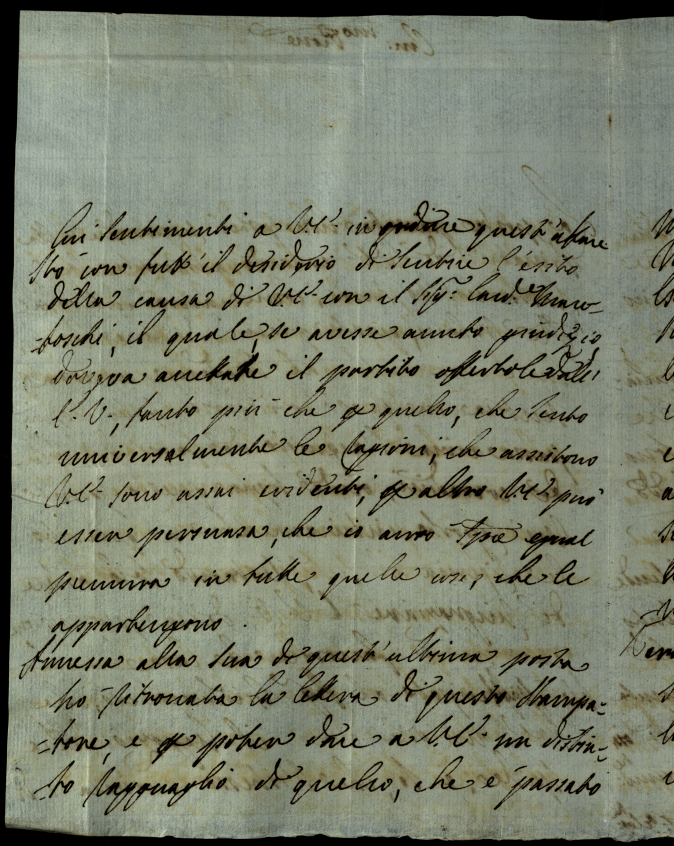 sentimenti a V.E. in quest' affare
Sto con tutt' il desiderio di sentire l'esito
della causa di V.E. con il Sig.r Card.e Mare-
-foschi, il quale, se avesse avuto giudizio
doveva accettare il partito offertole dall'
E. V., tanto più che p quello, che sento
universalmente le ragioni, che assistono
V.E. sono assai evidenti, p altro V.E. può
esser persuasa, che io avrò Spre egual
premura in tutte quelle cose, che le
appartengono.
Annessa alla sua di quest' ultima posta
ho ritrovata la lettera di questo Stampa-
-tore, e p poter dare a V.E. un distin-
-to ragguaglio di quello, che è passato